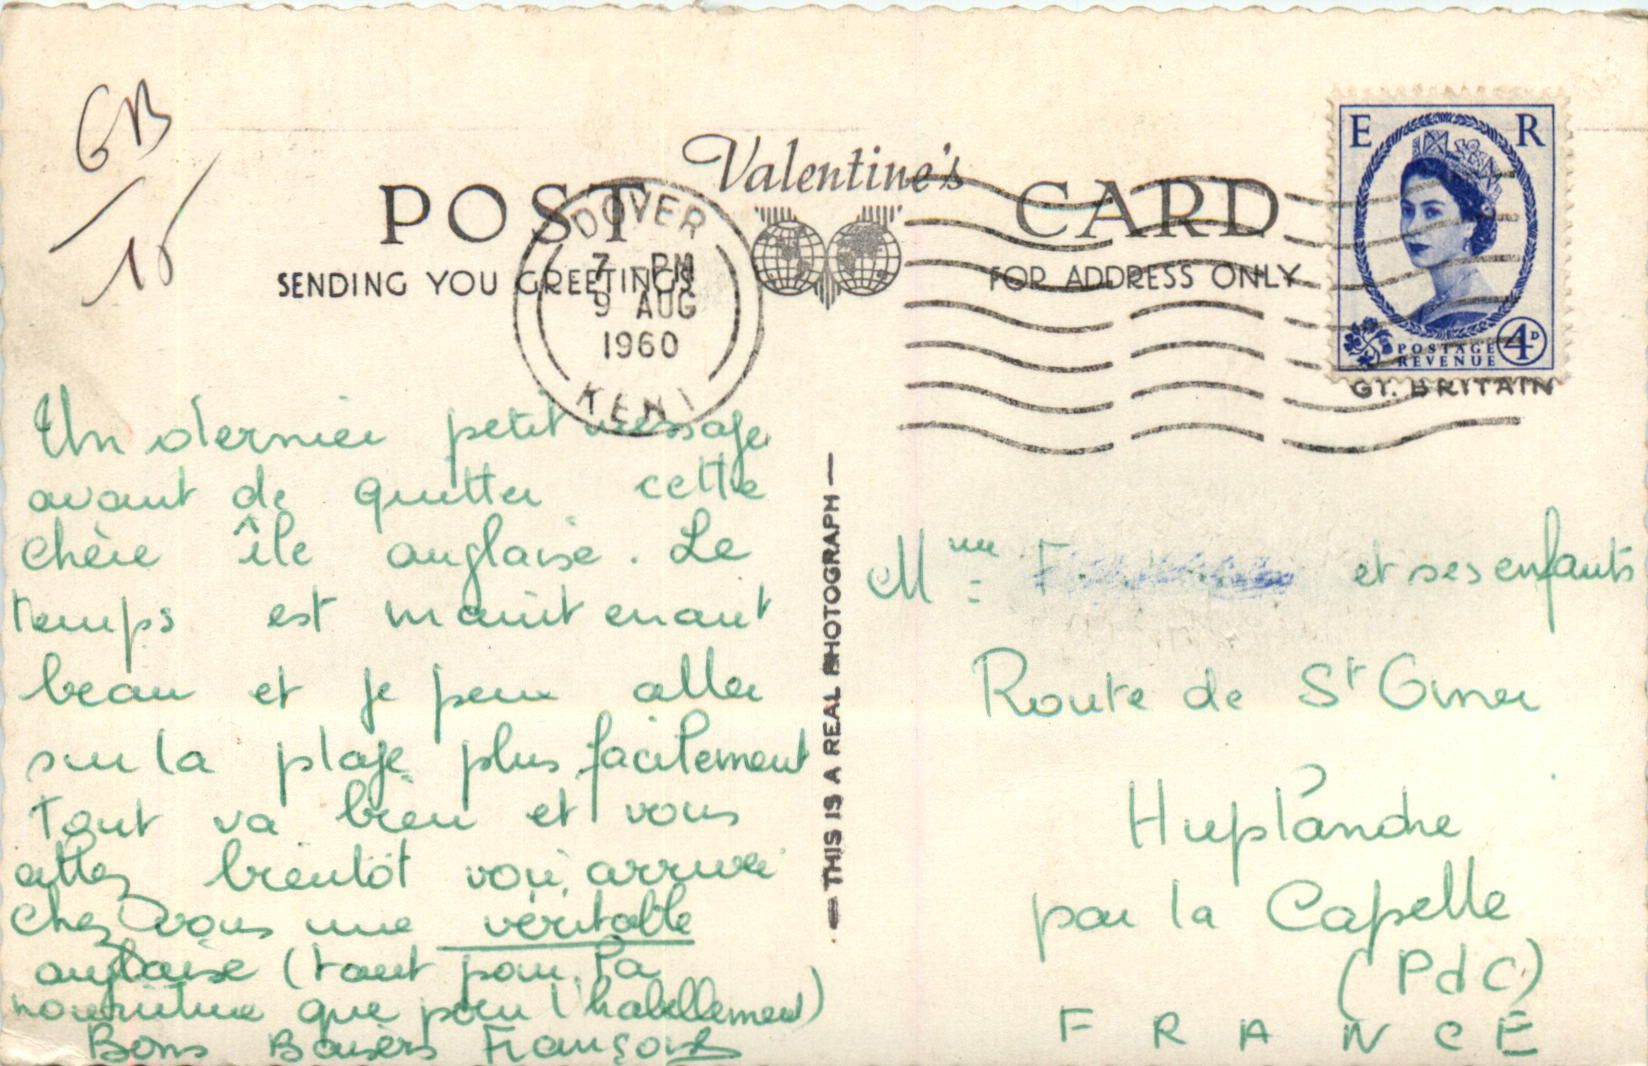 GB
15
Valentine's
POST CARD
SENDING YOU GREETINGS
FOR ADDRESS ONLY
DOVER
7 PM
9 AUG
1960
KENT
E R
POSTAGE
REVENUE
4D
GT. BRITAIN
Un dernier petit message
avant de quitter cette
chère île anglaise. Le
temps est maintenant
beau et je peux aller
sur la plage plus facilement
Tout va bien et vous
allez bientôt voir arriver
chez vous une véritable
anglaise (tant pour la
nourriture que pour l'habillement)
Bons Baisers Françoise
— THIS IS A REAL PHOTOGRAPH —
Mme F et ses enfants
Route de St Omer
Huplandre
par la Capelle
(PdC)
FRANCE